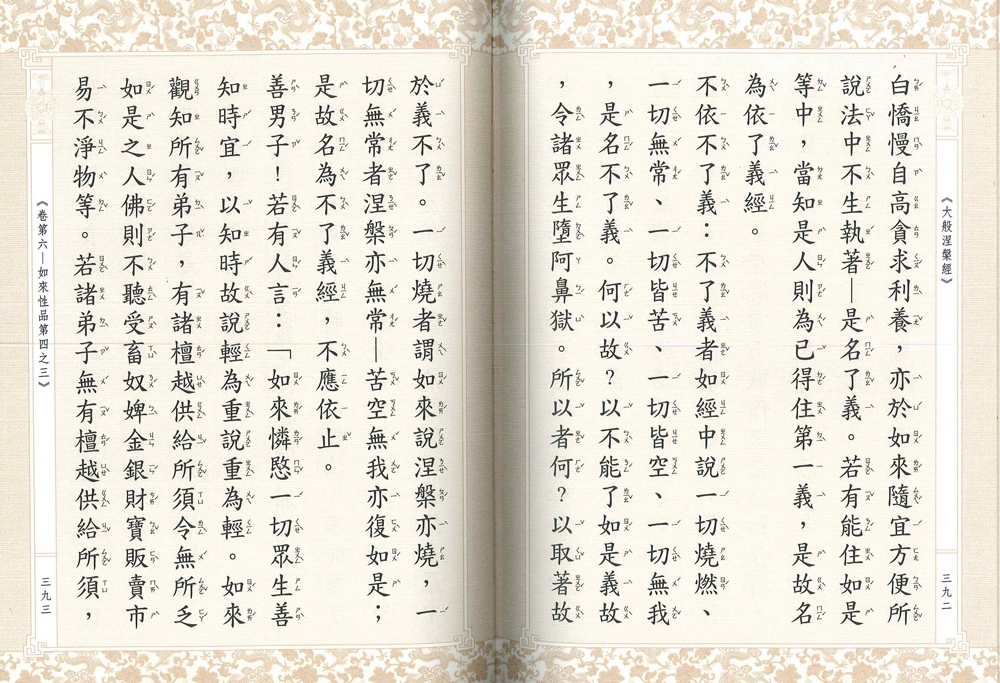 《大般涅槃經》
三九二
白憍慢自高貪求利養，亦於如來隨宜方便所
說法中不生執著—是名了義。若有能住如是
等中，當知是人則為已得住第一義，是故名
為依了義經。
不依不了義：不了義者如經中說一切燒燃、
一切無常、一切皆苦、一切皆空、一切無我
，是名不了義。何以故？以不能了如是義故
，令諸眾生墮阿鼻獄。所以者何？以取著故
於義不了。一切燒者謂如來說涅槃亦燒，一
切無常者涅槃亦無常—苦空無我亦復如是；
是故名為不了義經，不應依止。
善男子！若有人言：「如來憐愍一切眾生善
知時宜，以知時故說輕為重說重為輕。如來
觀知所有弟子，有諸檀越供給所須令無所乏
如是之人佛則不聽受畜奴婢金銀財寶販賣市
易不淨物等。若諸弟子無有檀越供給所須，
《卷第六—如來性品第四之三》
三九三